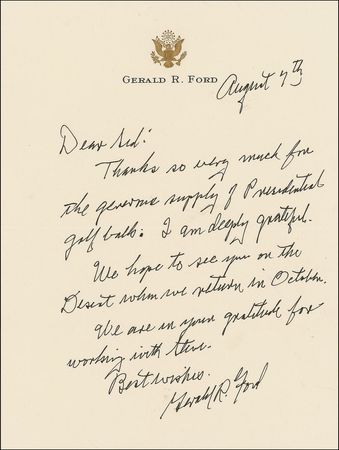 GERALD R. FORD
August 7th
Dear Sid:
Thanks so very much for
the generous supply of Presidential
golf balls. I am deeply grateful.
We hope to see you on the
Desert when we return in October.
We are in your gratitude for
working with Steve.
Best wishes.
Gerald R. Ford